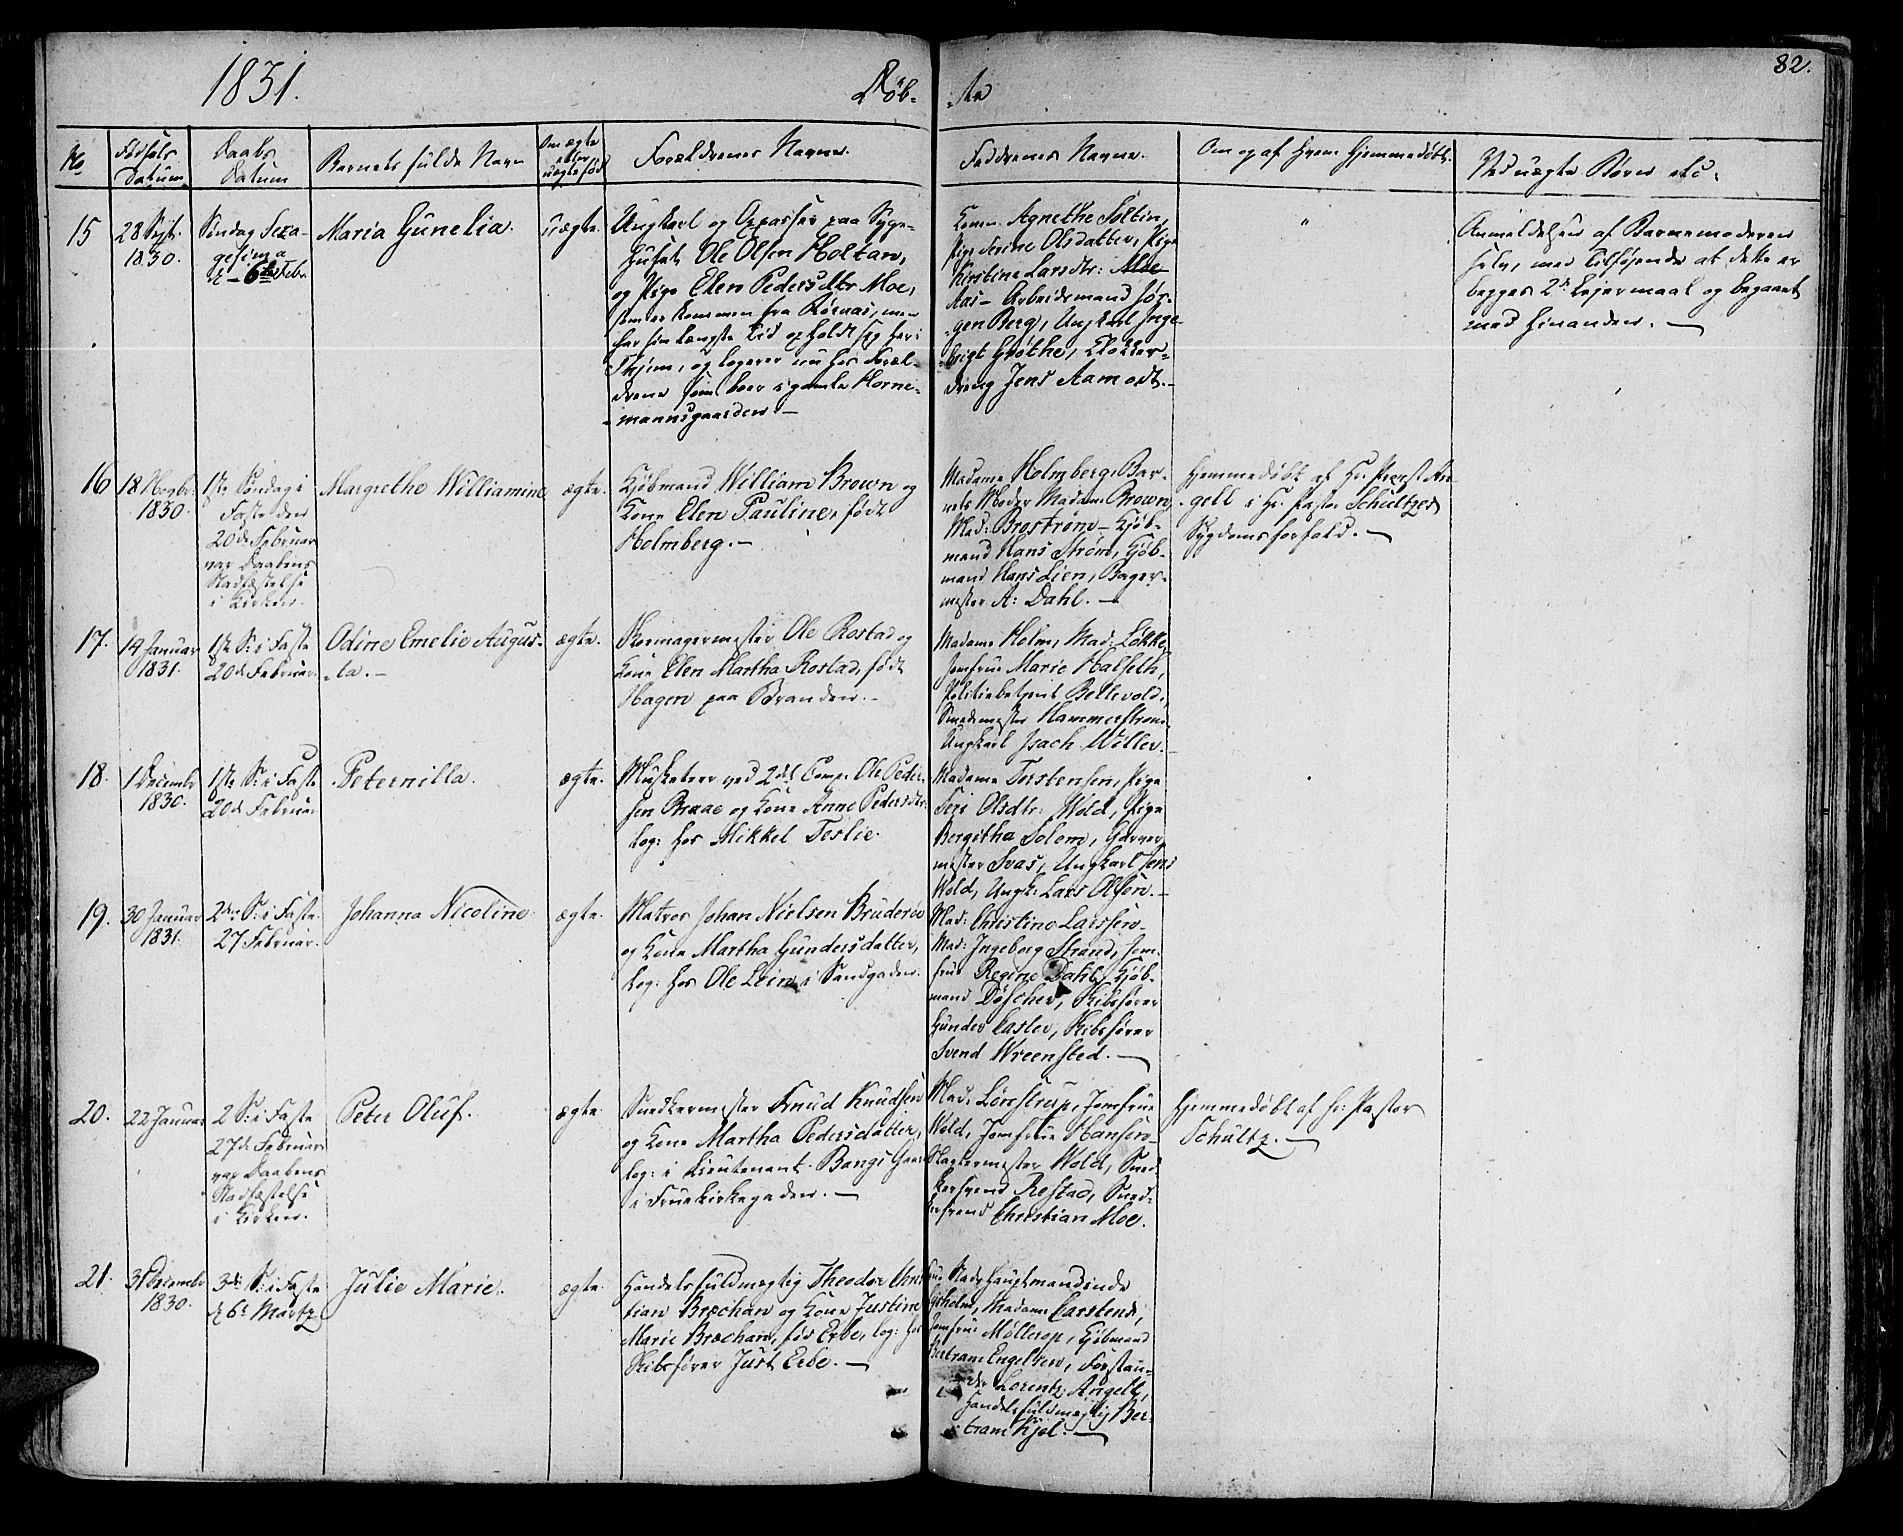 1831.
Døb-
-te
82.
No
Fødsels Datum
Daabs Datum
Barnets fulde Navn
Om ægte eller uægte fød
Forældrenes Navne.
Faddernes Navne.
Om og af Hvem Hjemmedøbt.
Ved uægte Børn etc.
15
28 Sept. 1830.
Søndag Sexa-
gesima
d. 6te Febr.
Maria Gunelia.
uægte.
Ungkarl og Opasser paa Syge-
huset Ole Olsen Holtan,
og Pige Elen Pedersdtr Moe,
som er kommen fra Røraas, men
har sin længste Tid opholdt sig her i
Thjem, og logerer nu hos Foræl-
drene som boer i gamle Horne-
mannsgaarden.
Kone Agnethe Soltin,
Pige Serine Olsdatter, Pige
Kirstine Larsdtr: Moe
Aas – Arbeidsmand Jør-
gen Berg, Ungkarl Inge-
brigt Grøthe, Klokker-
dreng Jens Aamodt.
Anmeldelsen af Barnemoderen
selv, med Tilføjende at dette er
begges 2det Lejermaal og begaaet
med hinanden.
16
18 Novbr. 1830.
1ste Søndag i
Faste den
20de Februar
var Daabens
Stadfæstelse
i Kirken.
Margrethe Williamine
ægte.
Kjøbmand William Brown og
Kone Elen Pauline, født
Holmberg.
Madame Holmberg, Bar-
nets Moder Madame Brown,
Mad: Brostrøm – Kjøb-
mand Hans Strøm, Kjøb-
mand Hans Lien, Bager-
mester A: Dahl.
Hjemmedøbt af Hr. Provst An-
gell i Hr. Pastor Schultzes
Sygdomsforfald.
17.
14 Januar 1831.
1ste S: i Faste
20de Februar.
Odine Emelie Augus-
-ta.
ægte.
Skomagermester Ole Rostad og
Kone Elen Martha Rostad, født
Hagen paa Branden.
Madame Holm, Mad: Løkke,
Jomfrue Marie Halseth,
Politiebetjent Bellevold,
Smedemester Hammerstrøm
Ungkarl Isach Willer.
18.
1 Decembr 1830.
1ste S: i Faste
20de Februar
Peternilla.
ægte.
Musketeer ved 2det Comp. Ole Peder-
sen Braae og Kone Anne Pedersdtr:
log: hos Mikkel Teslie.
Madame Torstensen, Pige
Seri Olsdtr: Wold, Pige
Bergitha Solem, Garver-
mester Svas, Ungkarl Jens
Wold, Ungk: Lars Olsen.
19.
30 Januar 1831.
2den S: i Faste.
27 Februar.
Johanna Nicoline
ægte.
Matros Johan Nielsen Bruderøe
og Kone Martha Gundersdatter,
log: hos Ole Lein i Sandgaden.
Mad: Christine Larssen
Mad: Ingeborg Strand, Jom-
frue Regine Dahl, Kjøb-
mand Døscher, Skibsfører
Gunder Caster, Skibsfører
Svend Wreensted.
20.
22 Januar
2 S: i Faste
27de Februar
var Daabens
Stadfæstelse
i Kirken.
Peter Oluf.
ægte.
Snedkermester Knud Knudsen
og Kone Martha Pedersdatter,
log: i Lieutenant Bangs Gaard
i Fruekirkegaden.
Mad: Lørstrup, Jomfrue
Wold, Jomfrue Hansen
Slagtermester Wold, Sned-
kersvend Restad, Sned-
kersvend Christian Moe.
Hjemmedøbt af Hr. Pastor
Schultz.
21.
31 Decembr 1830.
3die S: i Faste
d. 6te Martz
Julie Marie.
ægte.
Handelsfuldmægtig Theodor Chris-
tian Bræchan og Kone Justine
Marie Bræchan, fød Erbe, log: hos
Skibsfører Just Erbe.
Stadshauptmandinde
Madame Carstens,
Jomfrue Møllerop, Kjøbmand
Bertram Engelsen, Forstan-
der Lorentz Angell,
Handelsfuldmægtig Ber-
tram Kjel.